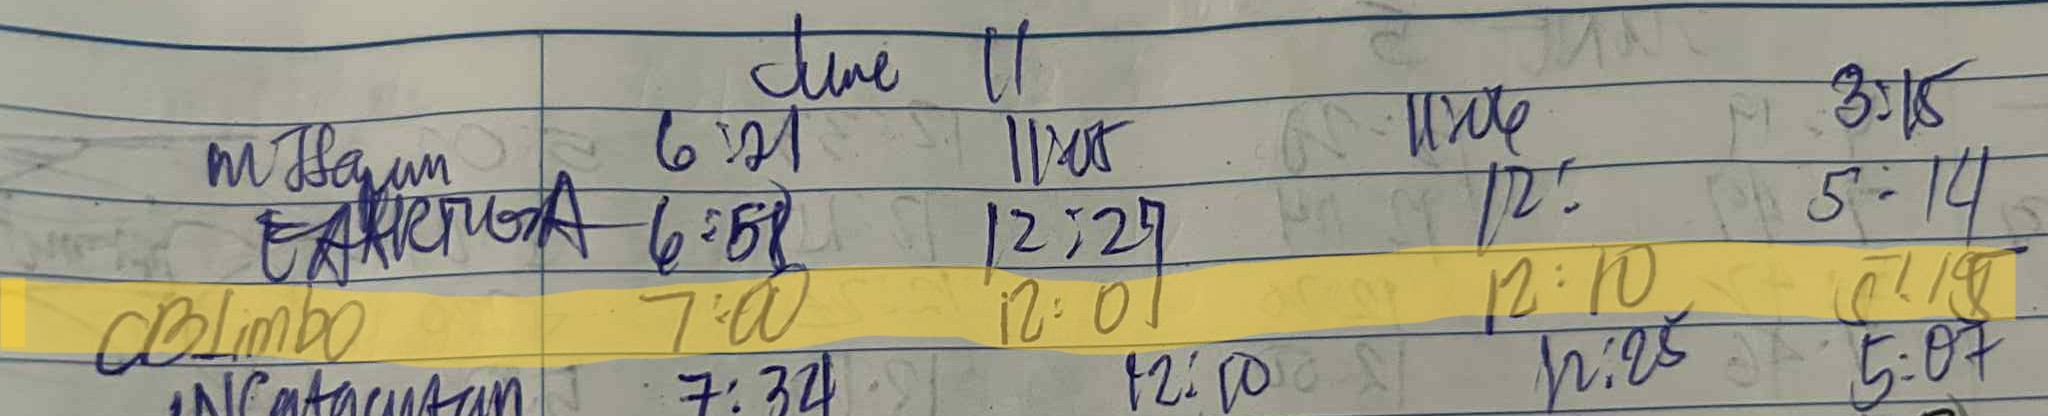 June 11
6:21 11:05 11:06 3:15
6:58 12:27 12: 5:14
CBLimbo 7:00 12:01 12:10 5:15
7:34 12:10 12:25 5:07